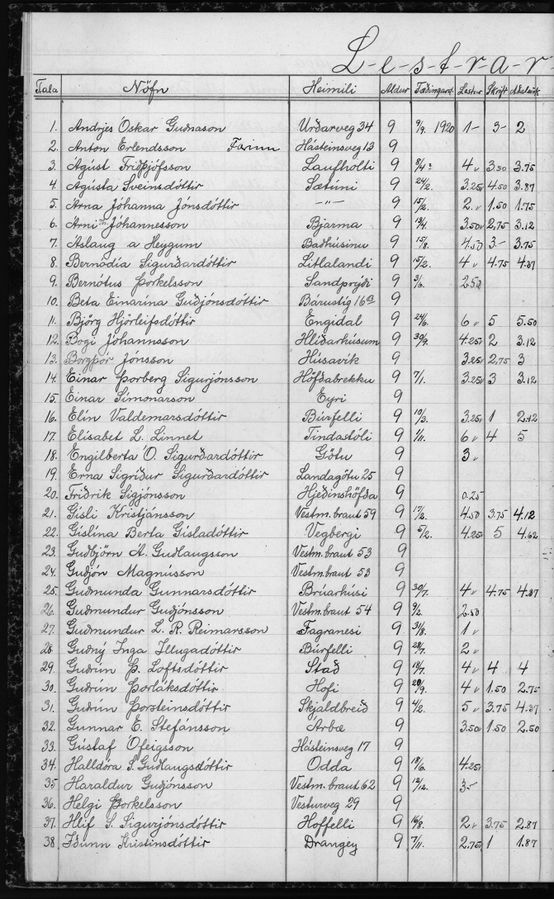 L-e-s-t-r-a-r
Tala Nöfn Heimili Aldur Fæðingard. Lestur Skrift Aðaleink
1. Andrjes Óskar Guðnason Urðarveg 34 9 9/9. 1920 1- 3- 2
2. Anton Erlendsson Farinn Hásteinsveg 13 9
3. Ágúst Friðþjófsson Laufholti 9 4 v 3.50 3.75
4. Ágústa Sveinsdóttir Sætúni 9 24/2. 3.25 v 4.50 3.87
5. Árna Jóhanna Jónsdóttir -"- 9 15/2. 2. v 1.50 1.75
6. Árni Jóhannesson Bjarma 9 19/4. 3.50 v 2.75 3.12
7. Áslaug á Heygum Baðhúsinu 9 15/8. 4.50 3- 3.75
8. Bernódía Sigurðardóttir Litlalandi 9 15/2. 4 v 4.75 4.37
9. Bernótus Þorkelsson Sandprýði 9 3/6. 2.50
10. Beta Einarína Guðjónsdóttir Bárustíg 16a 9
11. Björg Hjörleifsdóttir Engidal 9 24/6. 6 v 5 5.50
12. Bogi Jóhannsson Hlíðarhúsum 9 30/9. 4.25 v 2 3.12
13. Borgþór Jónsson Húsavík 9 3.25 v 2.75 3
14. Einar Þorberg Sigurjónsson Höfðabrekku 9 7/1. 3.25 v 3 3.12
15. Einar Símonarson Eyri 9
16. Elín Valdemarsdóttir Búrfelli 9 10/3. 3.25 v 1 2.12
17. Elísabet L. Linnet Tindastóli 9 6 v 4 5
18. Engilberta O. Sigurðardóttir Götu 9 3 v
19. Erna Sigríður Sigurðardóttir Landagötu 25 9
20. Friðrik Sigjónsson Hjeðinshöfða 9 0.25
21. Gísli Kristjánsson Vestm.braut 59 9 17/2. 4.50 3.75 4.12
22. Gíslína Berta Gísladóttir Vegbergi 9 5/2. 4.25 v 5 4.62
23. Guðbjörn A. Guðlaugsson Vestm.braut 53 9
24. Guðjón Magnússon Vestm.braut 53 9
25. Guðmunda Gunnarsdóttir Brúarhúsi 9 30/7. 4 v 4.75 4.37
26. Guðmundur Guðjónsson Vestm.braut 54 9 9/2. 2.50
27. Guðmundur L. R. Reimarsson Fagranesi 9 31/8. 1 v
28. Guðný Inga Illugadóttir Búrfelli 9 28/7. 2 v
29. Guðrún Þ. Loftsdóttir Stað 9 19/7. 4 v 4 4
30. Guðrún Þorláksdóttir Hofi 9 20/9. 4 v 1.50 2.75
31. Guðrún Þorsteinsdóttir Skjaldbreið 9 4/2. 5 v 3.75 4.37
32. Gunnar E. Stefánsson Árbæ 9 3.50 1.50 2.50
33. Gústaf Ófeigsson Hásteinsveg 17 9
34. Halldóra S. Guðlaugsdóttir Odda 9 18/6. 4.25 v
35 Haraldur Guðjónsson Vestm.braut 62 9 12/12. 3-
36. Helgi Þorkelsson Vesturveg 29 9
37. Hlíf S. Sigurjónsdóttir Hoffelli 9 16/8. 2 v 3.75 2.87
38. Iðunn Kristinsdóttir Drangey 9 7/11. 2.75 1 1.87